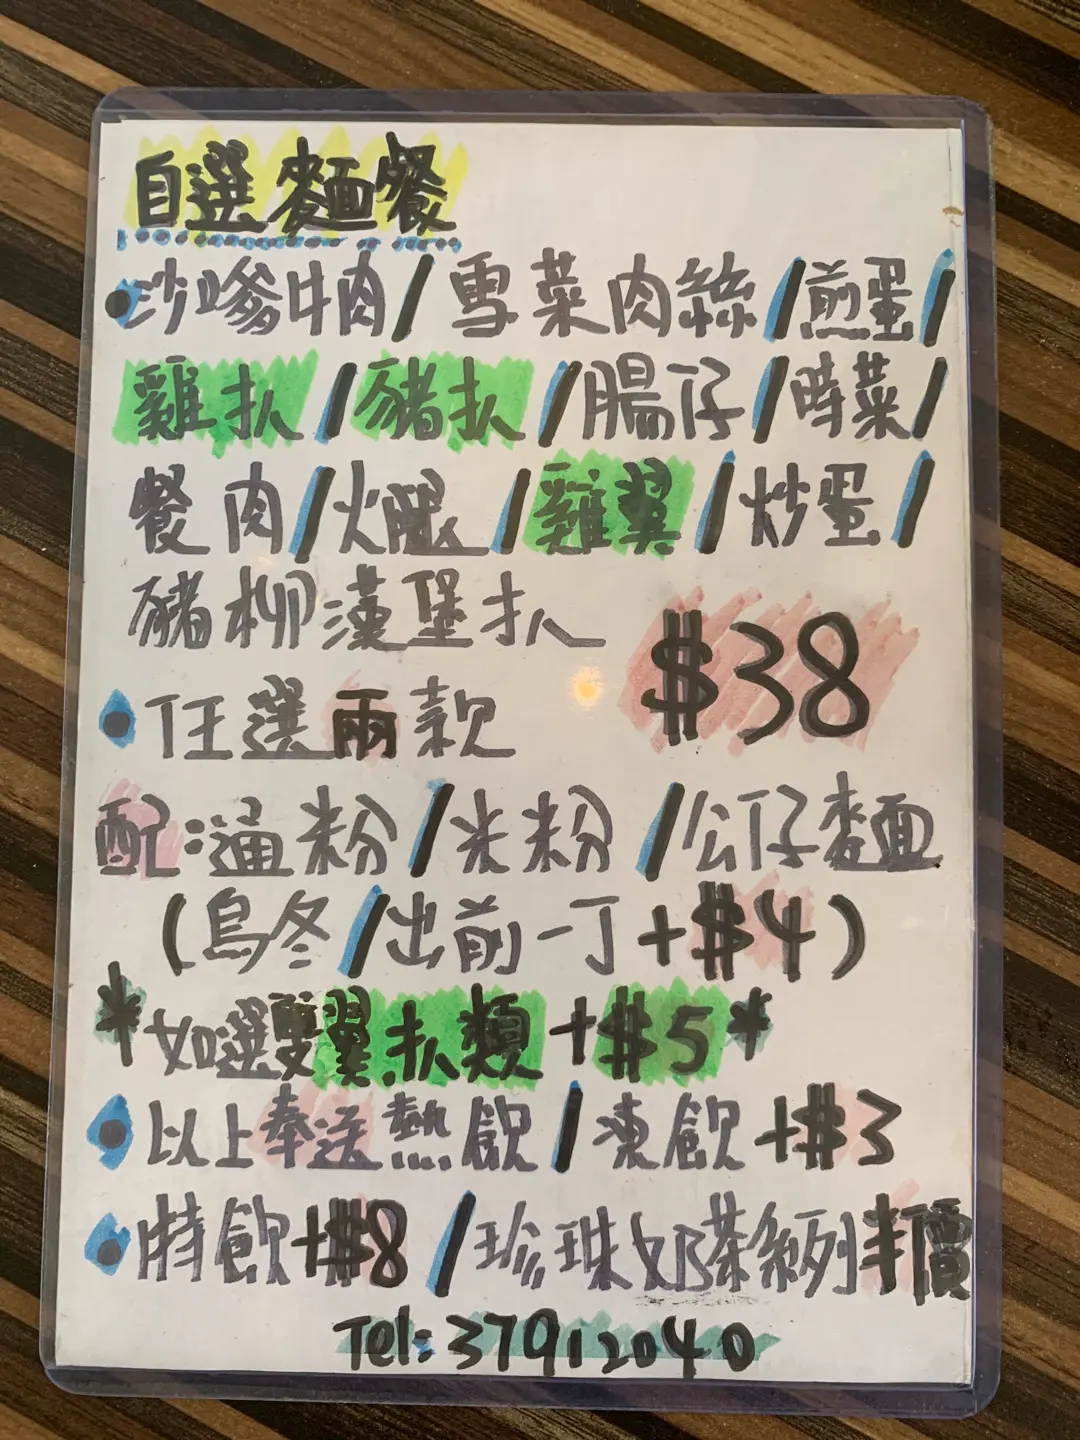 自選麵餐
•沙嗲牛肉/雪菜肉絲/煎蛋/
雞扒/豬扒/腸仔/時菜/
餐肉/火腿/雞翼/炒蛋/
豬柳漢堡扒
$38
•任選兩款
配:通粉/米粉/公仔麵
(烏冬/出前一丁+$4)
*如選雙翼扒類+$5*
•以上奉送熱飲/凍飲+$3
•特飲+$8/珍珠奶茶系列半價
Tel:37912040